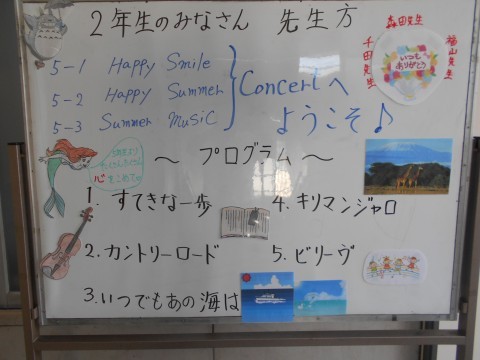 2年生のみなさん 先生方
森田先生
千田先生
福山先生
いつも
ありがとう
5-1 Happy Smile
5-2 Happy Summer
5-3 Summer Music
Concertへ
ようこそ♪
心をこめて
〜 プログラム 〜
1. すてきな一歩
2. カントリーロード
3. いつでもあの海は
4. キリマンジャロ
5. ビリーヴ